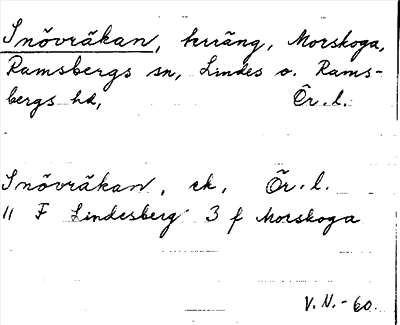 Snövråkan, kurräng, Morskoga,
Ramsbergs sn, Lindes o. Rams-
bergs hd, Ör.l.
Snövråkan, ek, Ör.l.
11 F Lindesberg 3 f Morskoga
V.N.-60.